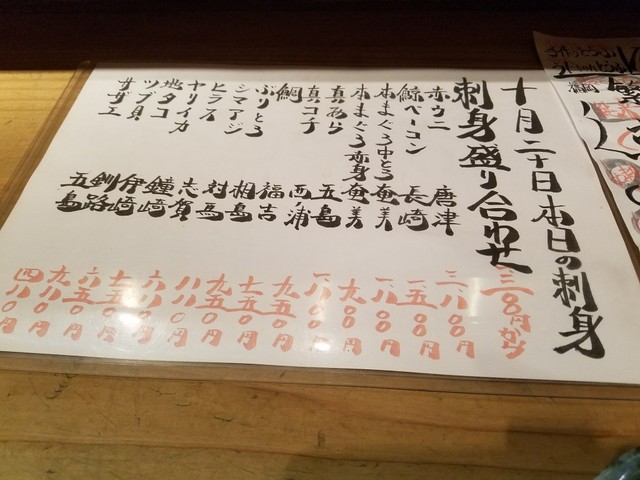 十月二十日本日の刺身
刺身盛り合わせ 円から
赤ウニ 唐津 三、八〇〇円
鯨ベーコン 長崎 一、五〇〇円
本まぐろ中とろ 奄美 一、八〇〇円
本まぐろ赤身 奄美 九〇〇円
真あら 五島 一、八〇〇円
真コチ 西ノ浦 九五〇円
鯛 福吉 七五〇円
ぶりとろ 相島 九五〇円
シマアジ 対馬 八八〇円
ヒラス 志賀 六八〇円
ヤリイカ 鐘崎 七五〇円
地タコ 伊崎 六五〇円
ツブ貝 釧路 九八〇円
サザエ 五島 四八〇円